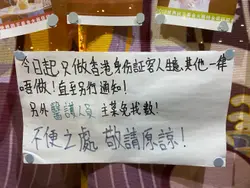 今日起只做香港身份証客人生意，其他一律
唔做！直至另行通知！
另外醫護人員 主菜免找數！
不便之處 敬請原諒！